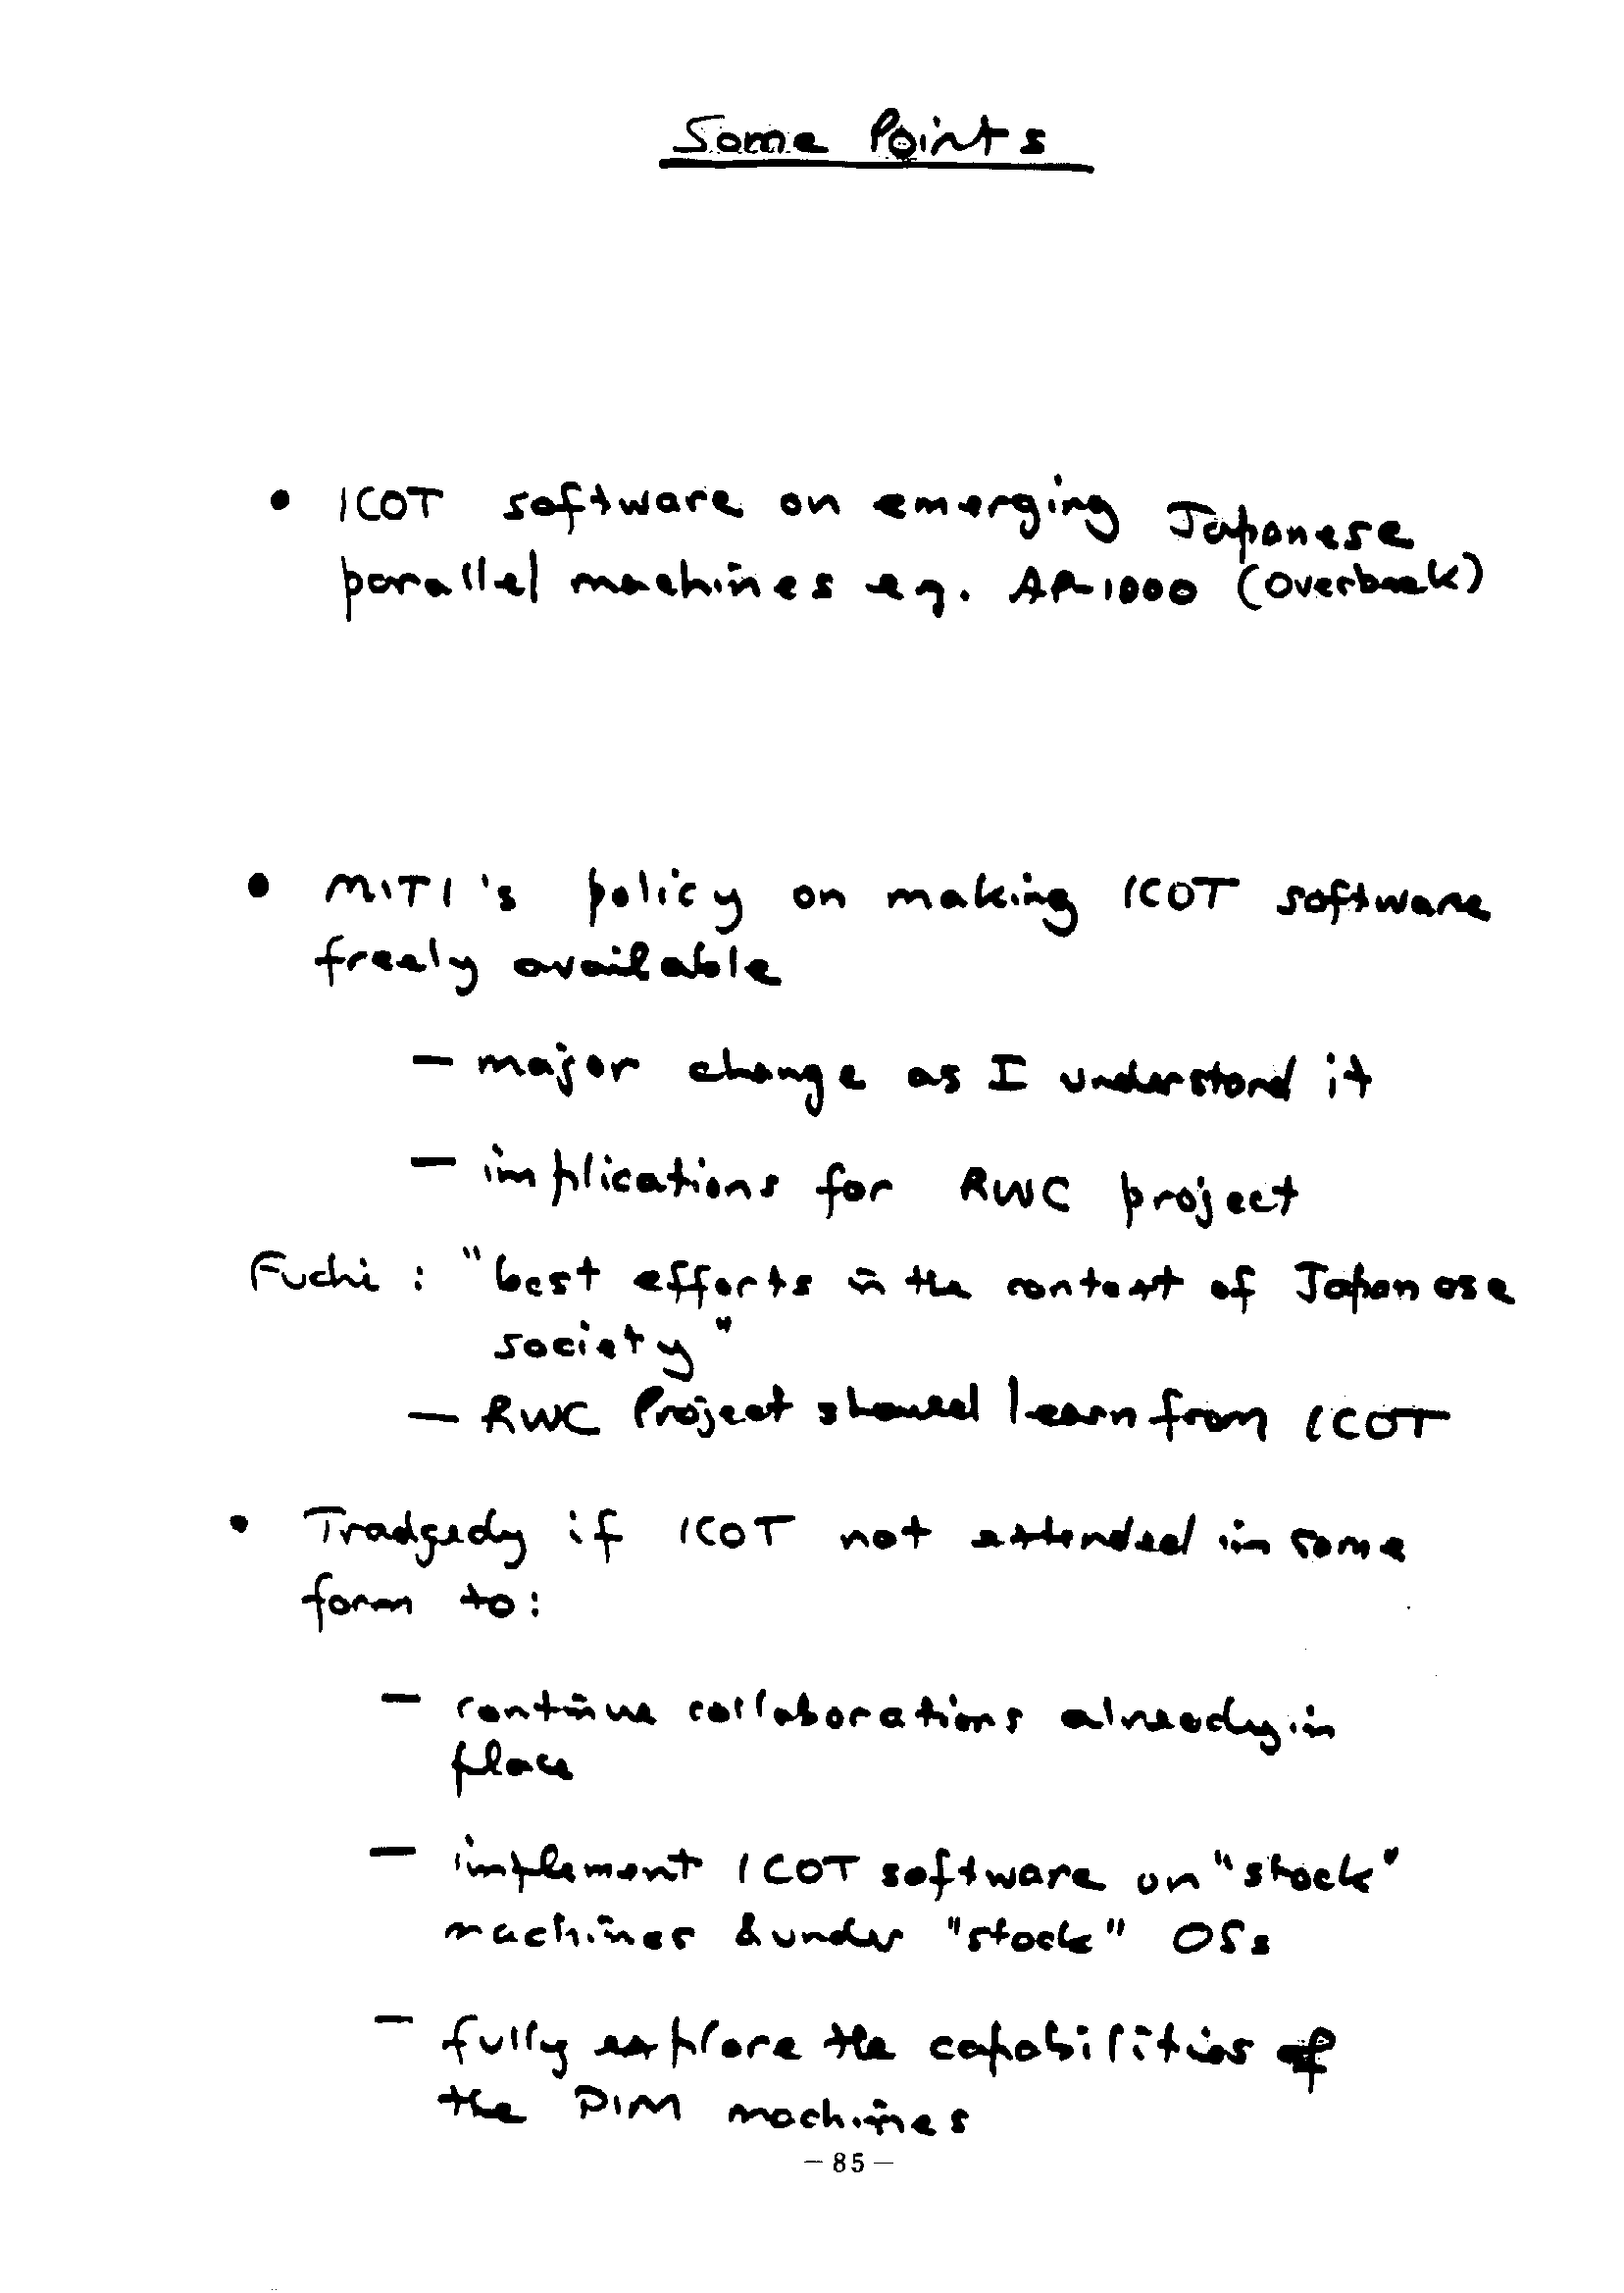 Some Points
• ICOT software on emerging Japanese
parallel machines eg. AP-1000 (Overbeek)
• MITI's policy on making ICOT software
freely available
— major change as I understand it
— implications for RWC project
Fuchi : "best efforts in the context of Japanese
society"
— RWC Project should learn from ICOT
• Tradgedy if ICOT not extended in some
form to:
— continue collaborations already in
place
— implement ICOT software on "stock"
machines & under "stock" OSs
— fully explore the capabilities of
the PIM machines
— 85 —